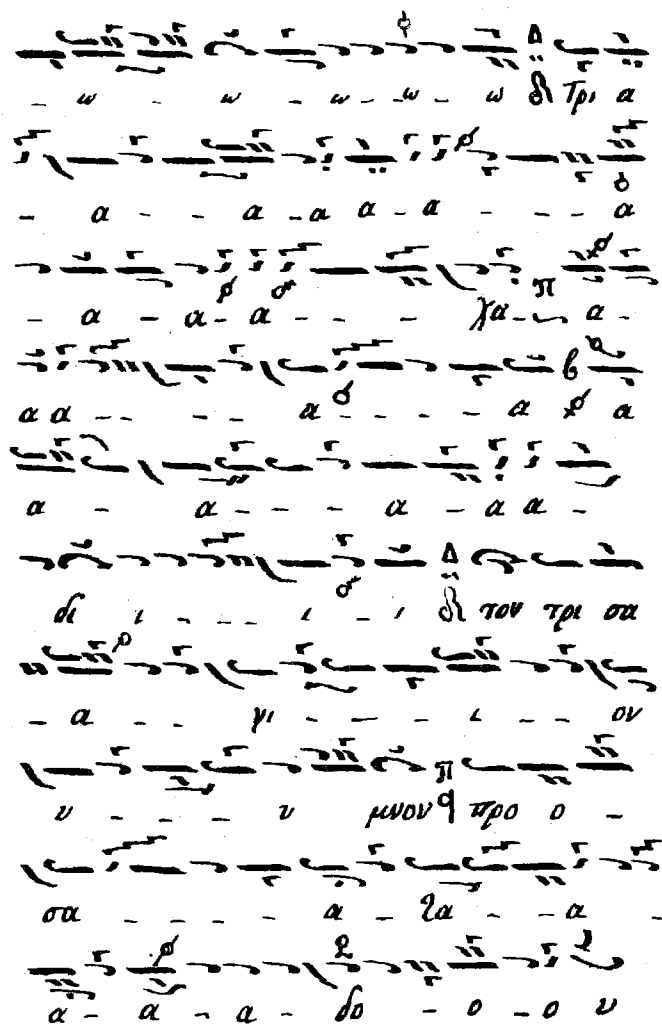 - ω - ω - ω - - ω - ω Δ Τρι α
- α - - α - α α - α - - - α
- α - α - α - - - - π χα - α -
α α - - - - α - - - - α β α
α - α - - - α - α α -
δι ι - - - - ι - ι Δ τον τρι σα
- α - - γι - - - ι - - ον
υ - - - υ μνον π προ ο -
σα - - - - α - γα - - α -
α - α - α - δο - ο - ο υ